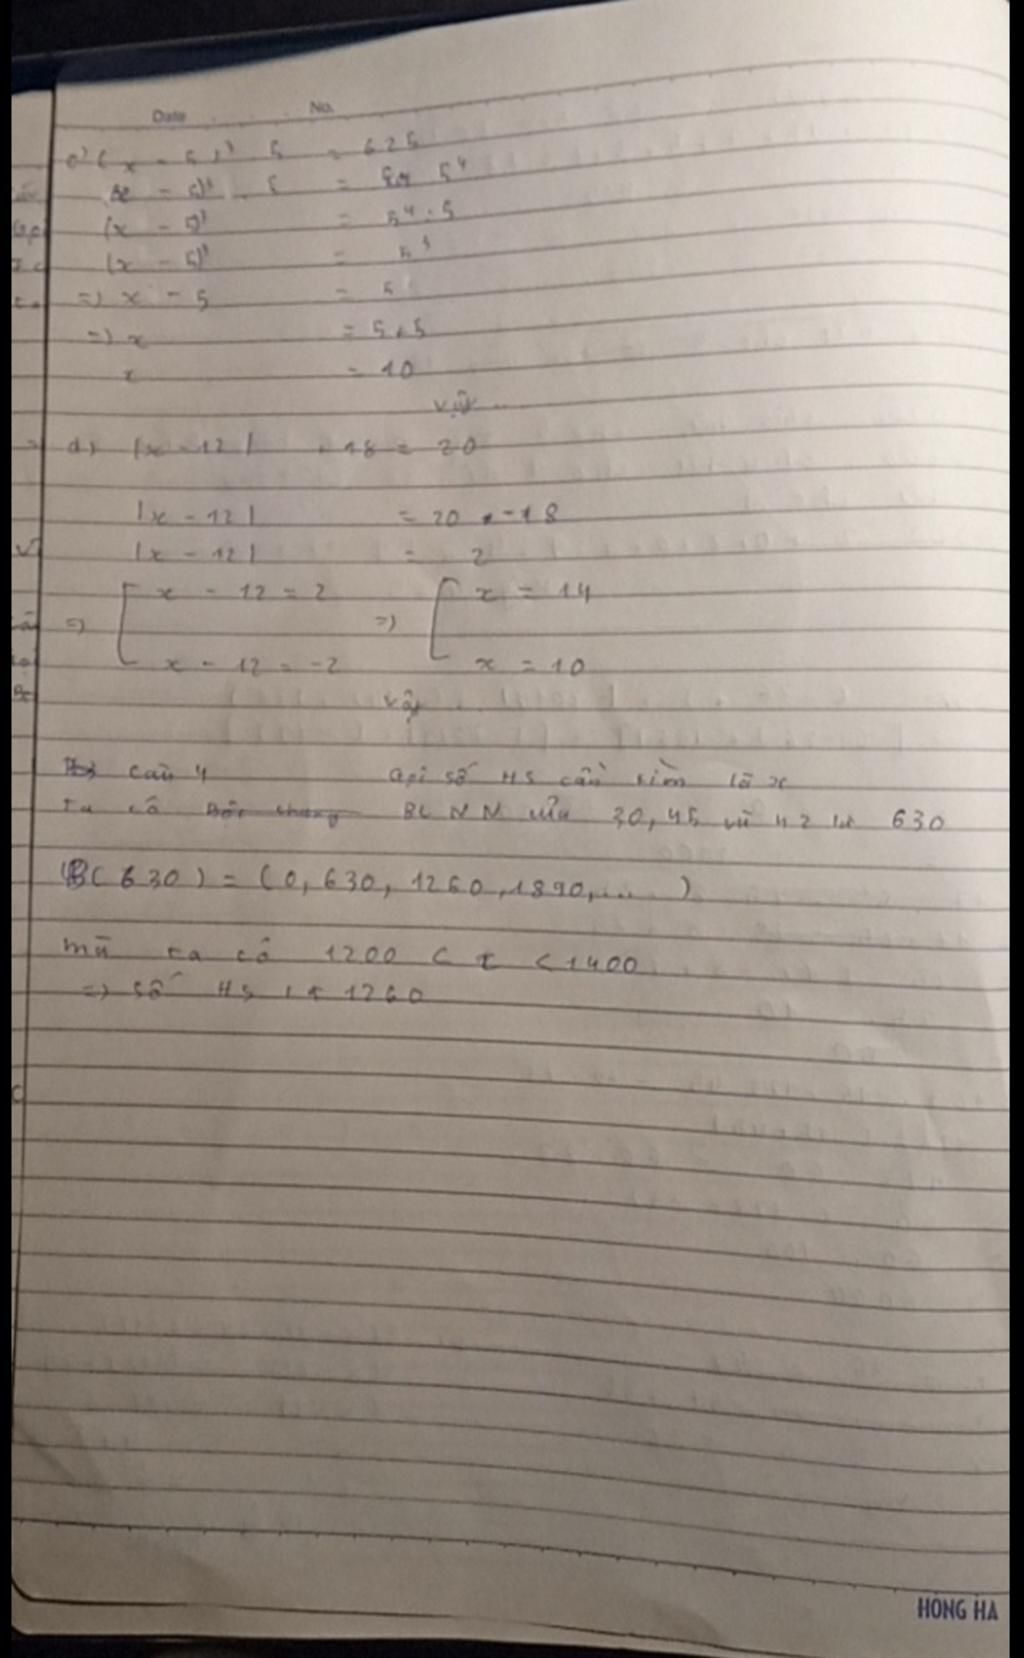 Date No.
c) (x - 5)³ . 5 = 625
(x - 5)³ . 5 = 5⁴
(x - 5)³ = 5⁴ : 5
(x - 5)³ = 5³
=> x - 5 = 5
=> x = 5 + 5
x = 10
Vậy ...
d) |x - 12| + 18 = 20
|x - 12| = 20 - 18
|x - 12| = 2
=> [ x - 12 = 2 => [ x = 14
x - 12 = -2 x = 10
Vậy
Câu 4 Gọi số HS cần tìm là x
Ta có BCNN của 30, 45 và 42 là 630
B(630) = (0, 630, 1260, 1890, ... )
mà ta có 1200 < x < 1400
=> số HS là 1260
HONG HA